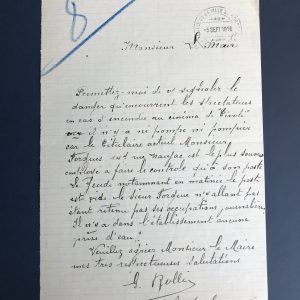 8
-5 SEPT 1918
Monsieur Le Maire
Permettez-moi de vs signaler le
danger qu'encourrent les spectateurs
en cas d'incendie au cinéma de Tivoli
il n'y a ni pompe ni pompier
car le titulaire actuel Monsieur
Forgues est le plus souvent
employé à faire le contrôle qu'à son poste
Le Jeudi notamment en matinée le poste
est vide le sieur Forgues n'allant pas
étant retenu par ses occupations
Il n'a dans l'établissement aucune
prise d'eau.
Veuillez agréer Monsieur le Maire
mes très respectueuses salutations
G. Rollin